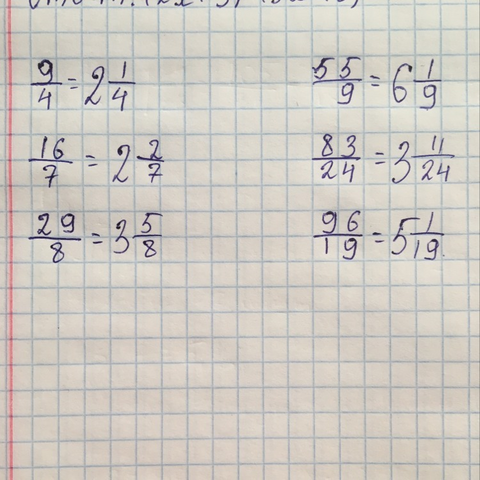 9/4 = 2 1/4
16/7 = 2 2/7
29/8 = 3 5/8
55/9 = 6 1/9
83/24 = 3 11/24
96/19 = 5 1/19